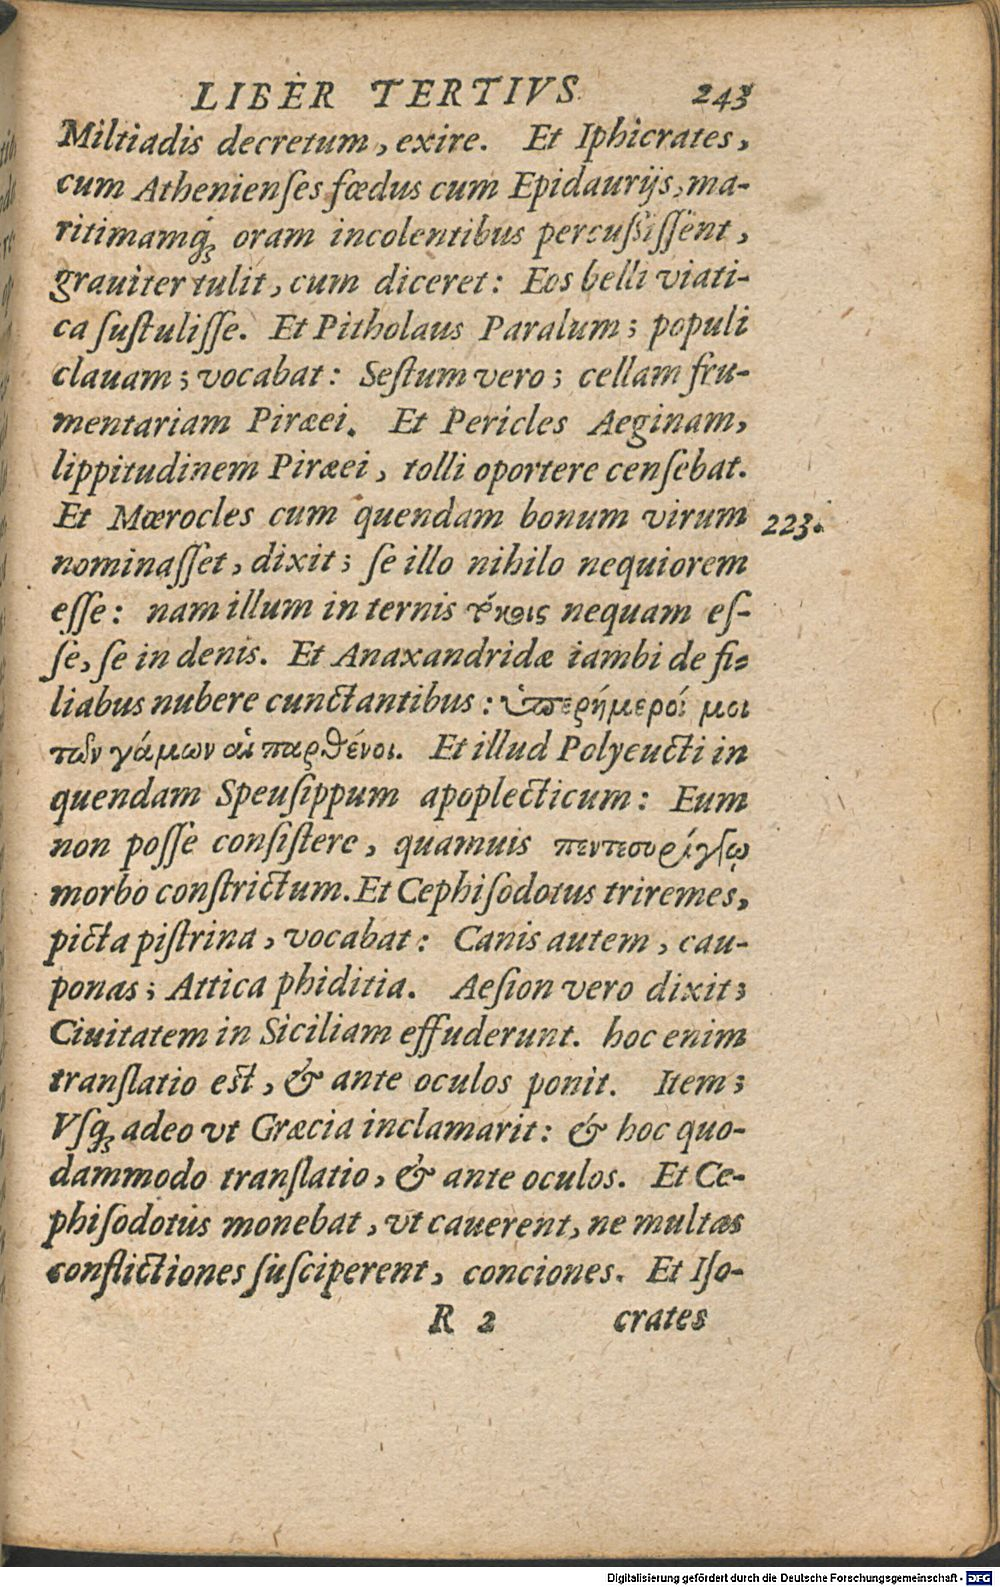 LIBER TERTIVS 243
Miltiadis decretum, exire. Et Iphicrates,
cum Athenienſes fœdus cum Epidaurijs, ma-
ritimamq́ꝫ oram incolentibus percuſſiſſent,
grauiter tulit, cum diceret: Eos belli viati-
ca ſuſtuliſſe. Et Pitholaus Paralum; populi
clauam; vocabat: Seſtum vero; cellam fru-
mentariam Piræei. Et Pericles Aeginam,
lippitudinem Piræei, tolli oportere cenſebat.
Et Mœrocles cum quendam bonum virum 223.
nominaſſet, dixit; ſe illo nihilo nequiorem
eſſe: nam illum in ternis nequam eſ-
ſe, ſe in denis. Et Anaxandridæ iambi de fi-
liabus nubere cunctantibus: ὑπερήμεροί μοι
τῶν γάμων αἱ παρθένοι. Et illud Polyeucti in
quendam Speuſippum apoplecticum: Eum
non poſſe conſiſtere, quamuis πεντεσυρίγγῳ
morbo conſtrictum. Et Cephiſodotus triremes,
picta piſtrina, vocabat: Canis autem, cau-
ponas; Attica phiditia. Aeſion vero dixit;
Ciuitatem in Siciliam effuderunt. hoc enim
tranſlatio eſt, & ante oculos ponit. Item;
Vſq́ꝫ adeo vt Græcia inclamarit: & hoc quo-
dammodo tranſlatio, & ante oculos. Et Ce-
phiſodotus monebat, vt cauerent, ne multas
conflictiones ſuſciperent, conciones. Et Iſo-
R 2 crates
Digitalisierung gefördert durch die Deutsche Forschungsgemeinschaft - DFG